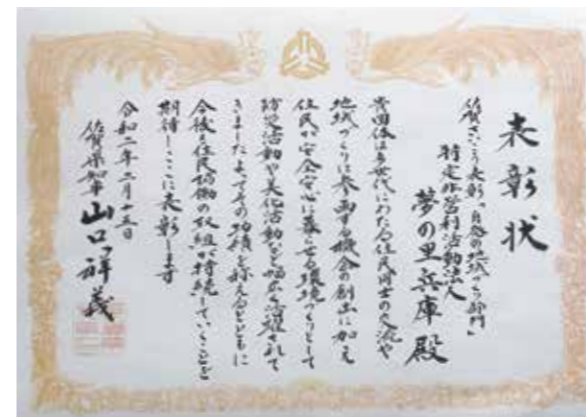 表彰状
佐賀さいこう表彰「自発の地域づくり部門」
特定非営利活動法人
夢の里兵庫殿
貴団体は多世代にわたる住民同士の交流や
地域づくりに参画する機会の創出に加え
住民が安全安心に暮らせる環境づくりとして
防災活動や美化活動など幅広く活躍されて
きましたよってその功績を称えるとともに
今後も住民協働の取組が持続していくことを
期待しここに表彰します
令和二年二月十五日
佐賀県知事 山口祥義